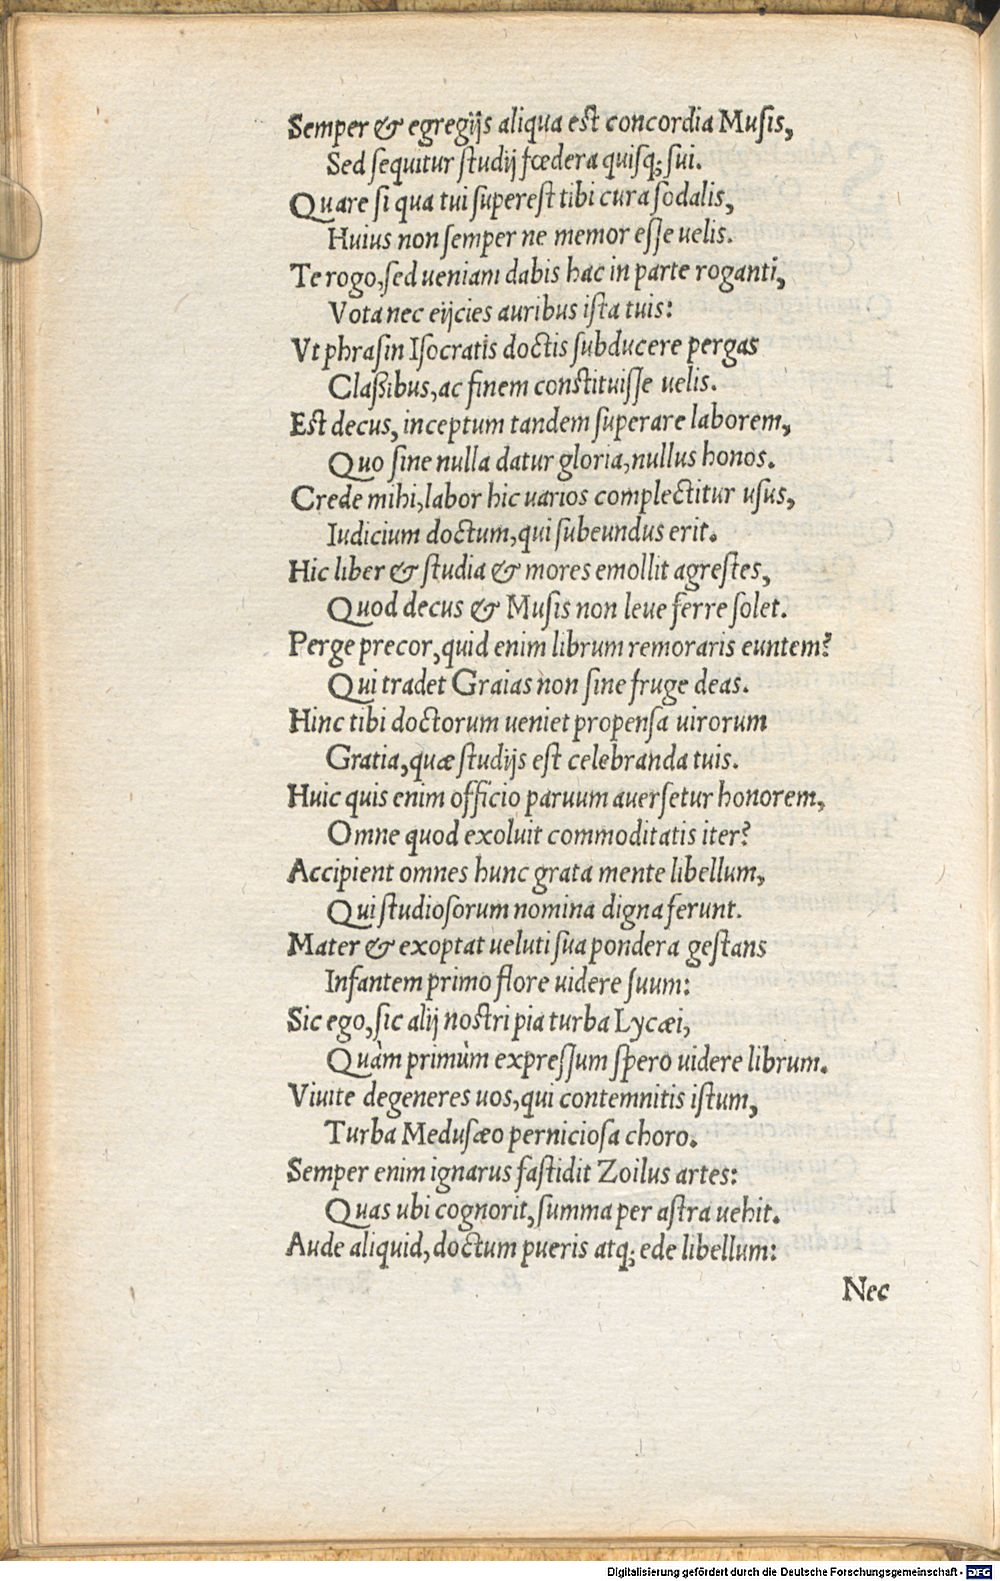 Semper & egregijs aliqua est concordia Musis,
Sed sequitur studij fœdera quisq; sui.
Quare si qua tui superest tibi cura sodalis,
Huius non semper ne memor esse uelis.
Te rogo, sed ueniam dabis hac in parte roganti,
Vota nec eijcies auribus ista tuis:
Vt phrasin Isocratis doctis subducere pergas
Claßibus, ac finem constituisse uelis.
Est decus, inceptum tandem superare laborem,
Quo sine nulla datur gloria, nullus honos.
Crede mihi, labor hic uarios complectitur usus,
Iudicium doctum, qui subeundus erit.
Hic liber & studia & mores emollit agrestes,
Quod decus & Musis non leue ferre solet.
Perge precor, quid enim librum remoraris euntem?
Qui tradet Graias non sine fruge deas.
Hinc tibi doctorum ueniet propensa uirorum
Gratia, quæ studijs est celebranda tuis.
Huic quis enim officio paruum auersetur honorem,
Omne quod exoluit commoditatis iter?
Accipient omnes hunc grata mente libellum,
Qui studiosorum nomina digna ferunt.
Mater & exoptat ueluti sua pondera gestans
Infantem primo flore uidere suum:
Sic ego, sic alij nostri pia turba Lycæi,
Quàm primùm expressum spero uidere librum.
Viuite degeneres uos, qui contemnitis istum,
Turba Medusæo perniciosa choro.
Semper enim ignarus fastidit Zoilus artes:
Quas ubi cognorit, summa per astra uehit.
Aude aliquid, doctum pueris atq; ede libellum:
Nec
Digitalisierung gefördert durch die Deutsche Forschungsgemeinschaft - DFG